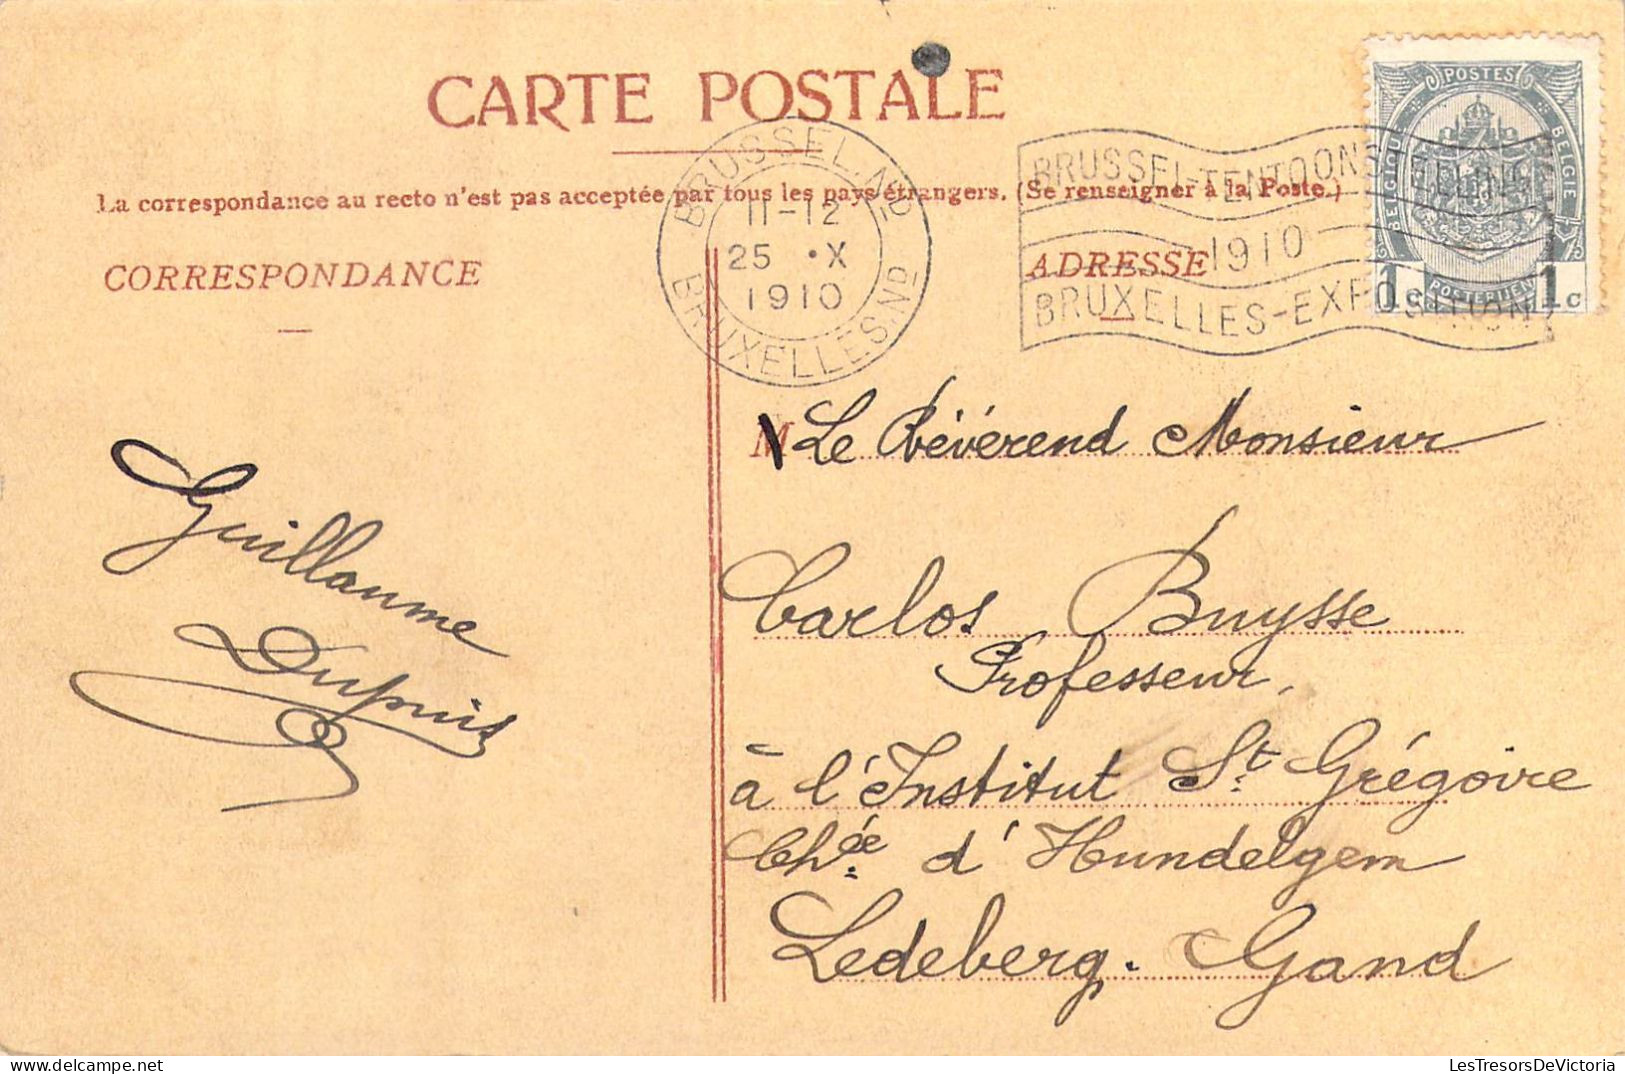 CARTE POSTALE
La correspondance au recto n'est pas acceptée par tous les pays étrangers. (Se renseigner à la Poste.)
BRUSSEL.Nd
11-12
25 •X
1910
BRUXELLES.Nd
BRUSSEL-TENTOONSTELLING
1910
BRUXELLES-EXPOSITION
POSTES
BELGIQUE
BELGIE
POSTERIJEN
1c 1c
CORRESPONDANCE
ADRESSE
Guillaume
Dupuis
M Le Révérend Monsieur
Carlos Buysse
Professeur,
à l'Institut St Grégoire
Chée d'Hundelgem
Ledeberg. Gand
LesTresorsDeVictoria